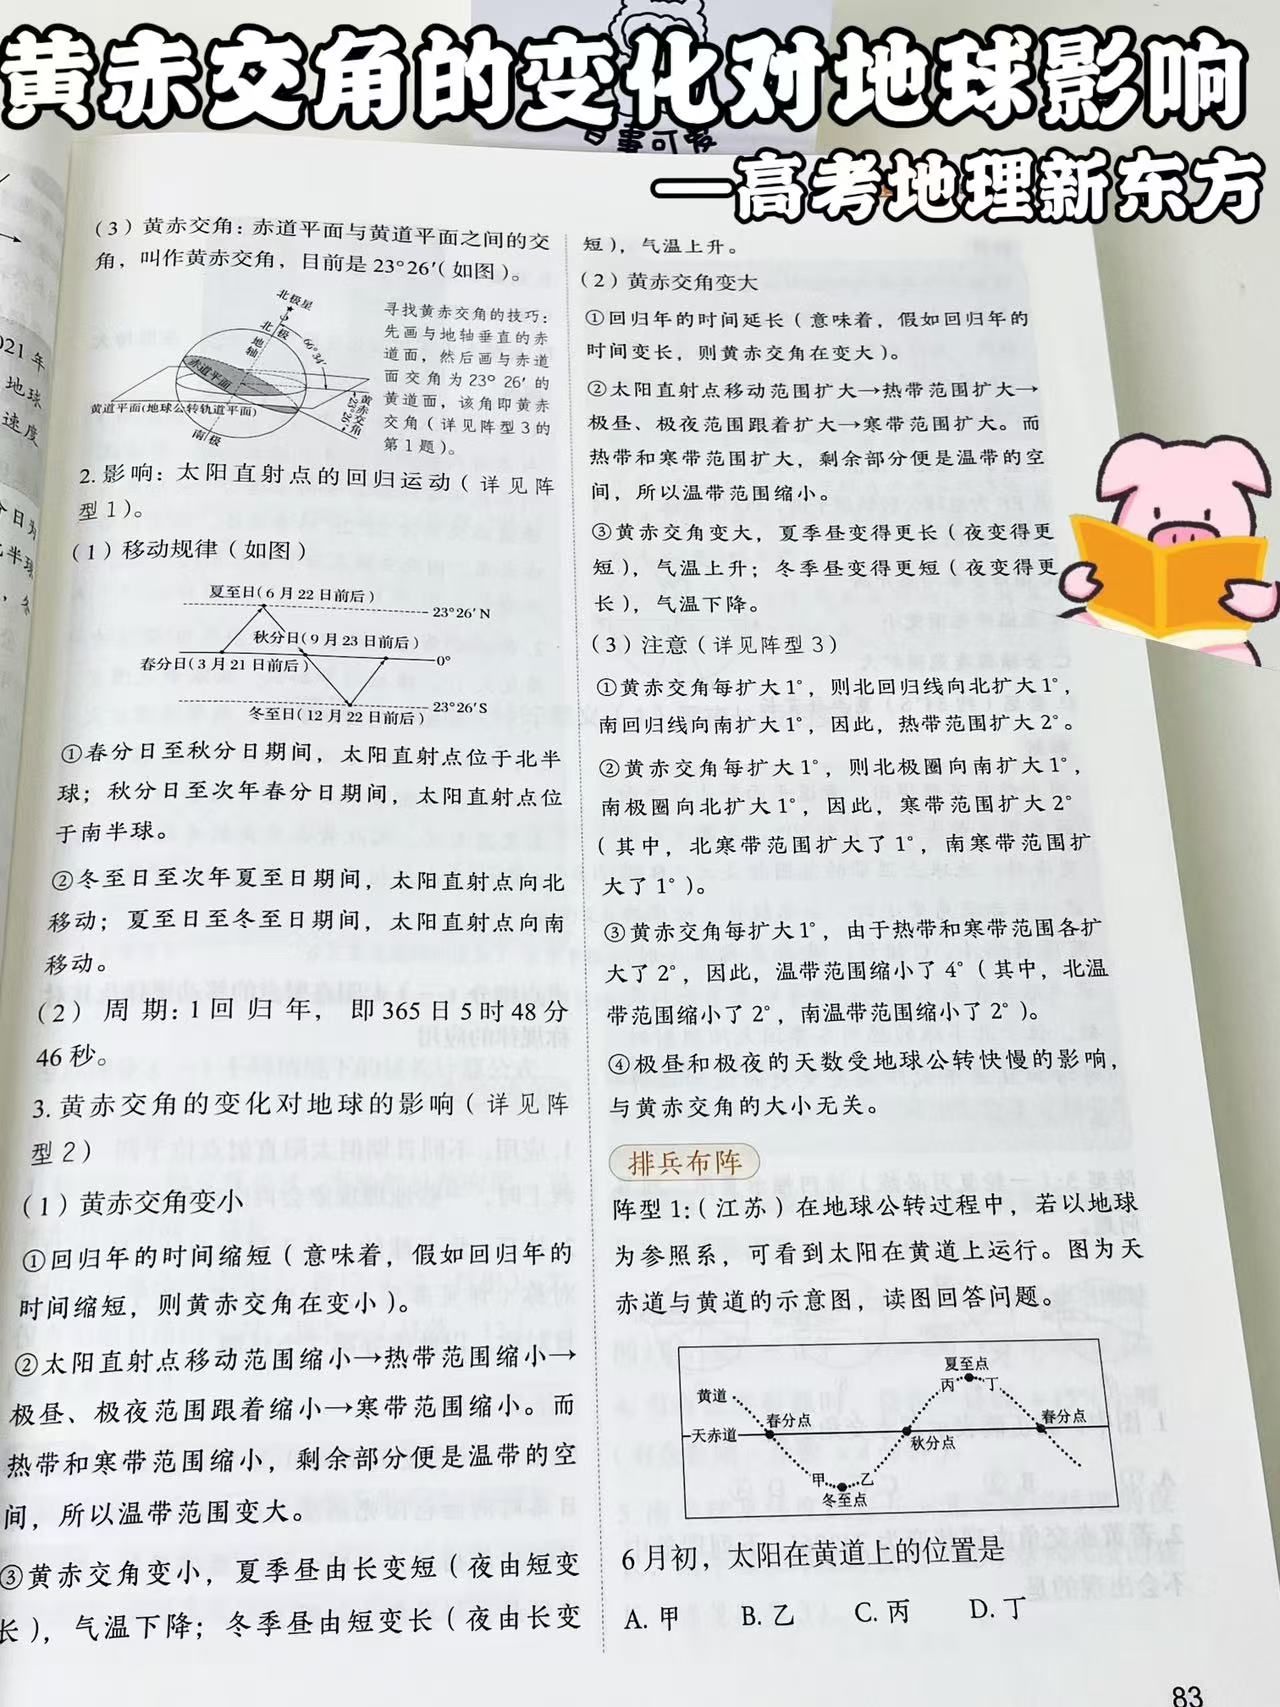 黄赤交角的变化对地球影响
—高考地理新东方
百事可爱
021年
地球
速度
(3)黄赤交角：赤道平面与黄道平面之间的交
角，叫作黄赤交角，目前是23°26′(如图)。
北极星
北极
地轴
66°34′
赤道平面
黄道平面(地球公转轨道平面)
黄赤交角
23°26′
南极
寻找黄赤交角的技巧：
先画与地轴垂直的赤
道面，然后画与赤道
面交角为23°26′的
黄道面，该角即黄赤
交角(详见阵型3的
第1题)。
2.影响：太阳直射点的回归运动(详见阵
型1)。
(1)移动规律(如图)
夏至日(6月22日前后)
23°26′N
秋分日(9月23日前后)
春分日(3月21日前后)
0°
23°26′S
冬至日(12月22日前后)
①春分日至秋分日期间，太阳直射点位于北半
球；秋分日至次年春分日期间，太阳直射点位
于南半球。
②冬至日至次年夏至日期间，太阳直射点向北
移动；夏至日至冬至日期间，太阳直射点向南
移动。
(2)周期：1回归年，即365日5时48分
46秒。
3.黄赤交角的变化对地球的影响(详见阵
型2)
(1)黄赤交角变小
①回归年的时间缩短(意味着，假如回归年的
时间缩短，则黄赤交角在变小)。
②太阳直射点移动范围缩小→热带范围缩小→
极昼、极夜范围跟着缩小→寒带范围缩小。而
热带和寒带范围缩小，剩余部分便是温带的空
间，所以温带范围变大。
③黄赤交角变小，夏季昼由长变短(夜由短变
长)，气温下降；冬季昼由短变长(夜由长变
短)，气温上升。
(2)黄赤交角变大
①回归年的时间延长(意味着，假如回归年的
时间变长，则黄赤交角在变大)。
②太阳直射点移动范围扩大→热带范围扩大→
极昼、极夜范围跟着扩大→寒带范围扩大。而
热带和寒带范围扩大，剩余部分便是温带的空
间，所以温带范围缩小。
③黄赤交角变大，夏季昼变得更长(夜变得更
短)，气温上升；冬季昼变得更短(夜变得更
长)，气温下降。
(3)注意(详见阵型3)
①黄赤交角每扩大1°，则北回归线向北扩大1°，
南回归线向南扩大1°，因此，热带范围扩大2°。
②黄赤交角每扩大1°，则北极圈向南扩大1°，
南极圈向北扩大1°，因此，寒带范围扩大2°
(其中，北寒带范围扩大了1°，南寒带范围扩
大了1°)。
③黄赤交角每扩大1°，由于热带和寒带范围各扩
大了2°，因此，温带范围缩小了4°(其中，北温
带范围缩小了2°，南温带范围缩小了2°)。
④极昼和极夜的天数受地球公转快慢的影响，
与黄赤交角的大小无关。
排兵布阵
阵型1：(江苏)在地球公转过程中，若以地球
为参照系，可看到太阳在黄道上运行。图为天
赤道与黄道的示意图，读图回答问题。
夏至点
黄道
丙 丁
春分点
春分点
天赤道
秋分点
甲 乙
冬至点
6月初，太阳在黄道上的位置是
A.甲 B.乙 C.丙 D.丁
83